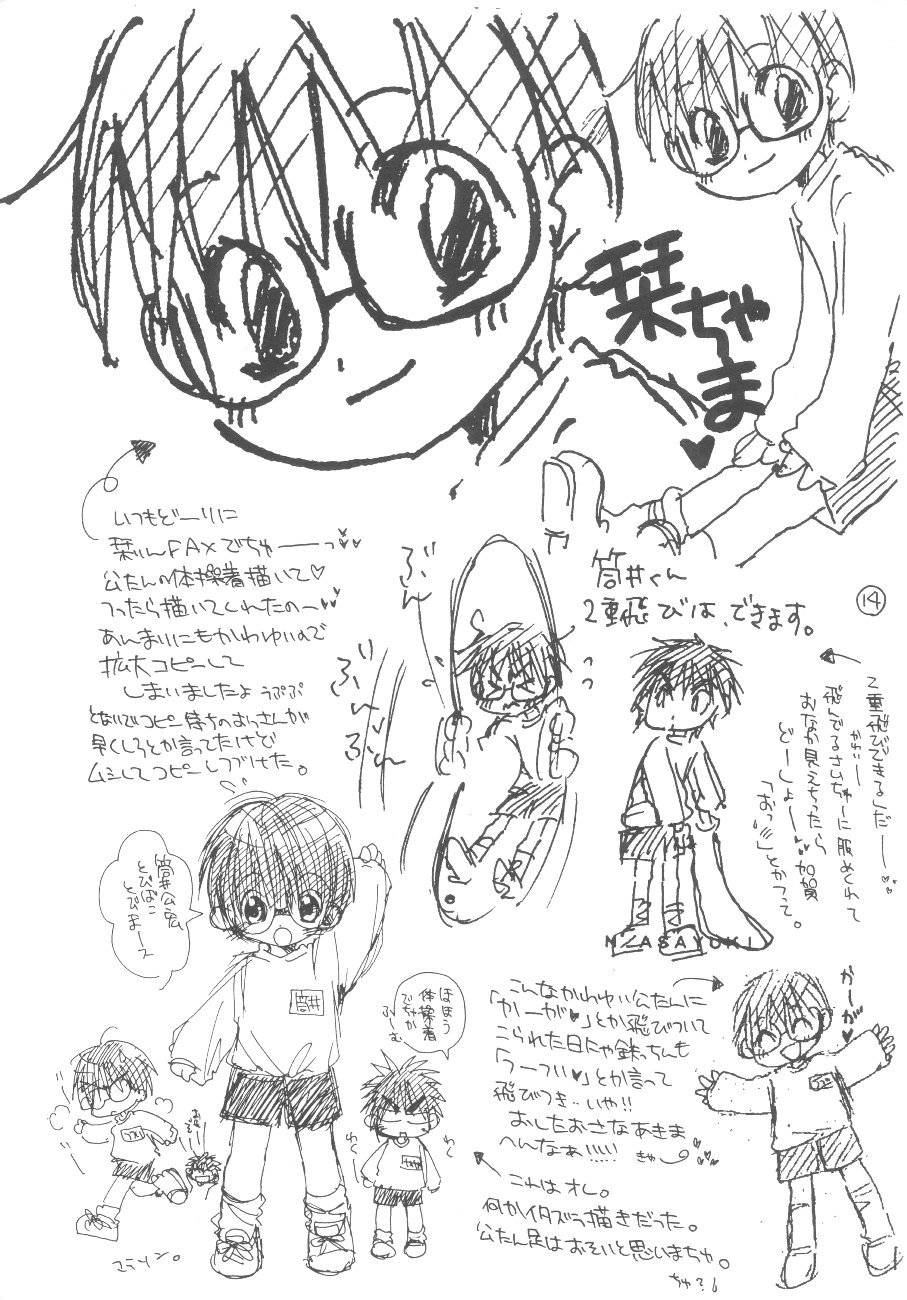 栞ちゃ
ま♥
いつもどーりに
栞りんFAXでちゅーーっ♥♥
公たんの体操着描いて♡
つったら描いてくれたのー♥♥
あんまいにもかわゆいので
拡大コピーして
しまいましたよ うぷぷ
となりでコピー待ちのおっさんが
早くしろとか言ってたけど
ムシしてコピーしつづけた。
ぶん
ぶん
ぶん
筒井くん
2重飛びは、できます。
14
2重飛びできる」だーー♥♥
かわいー
飛んでるさいちゅーに服めくれて
おなか見えちったら
どーしょーー♥♥加賀
「おっ!!!」とかつって。
MASAYUKI
筒井公宏
とびばこ
とびまース
筒井
ほほう
体操着
でちゅか
ふーむ
わく
わく
こんなかわゆい公たんに
「かーが♥」とか飛びついて
こられた日にゃ鉄っちんも
「つーつい♥」とか言って
飛びつき‥いや!!
おしたおさなあきま
へんなぁ!!!!! きゃー
かーが♥
これはオレ。
何かイタズラ描きだった。
公たん足はおそいと思いまちゅ。
ちゅ?!
マラソン。